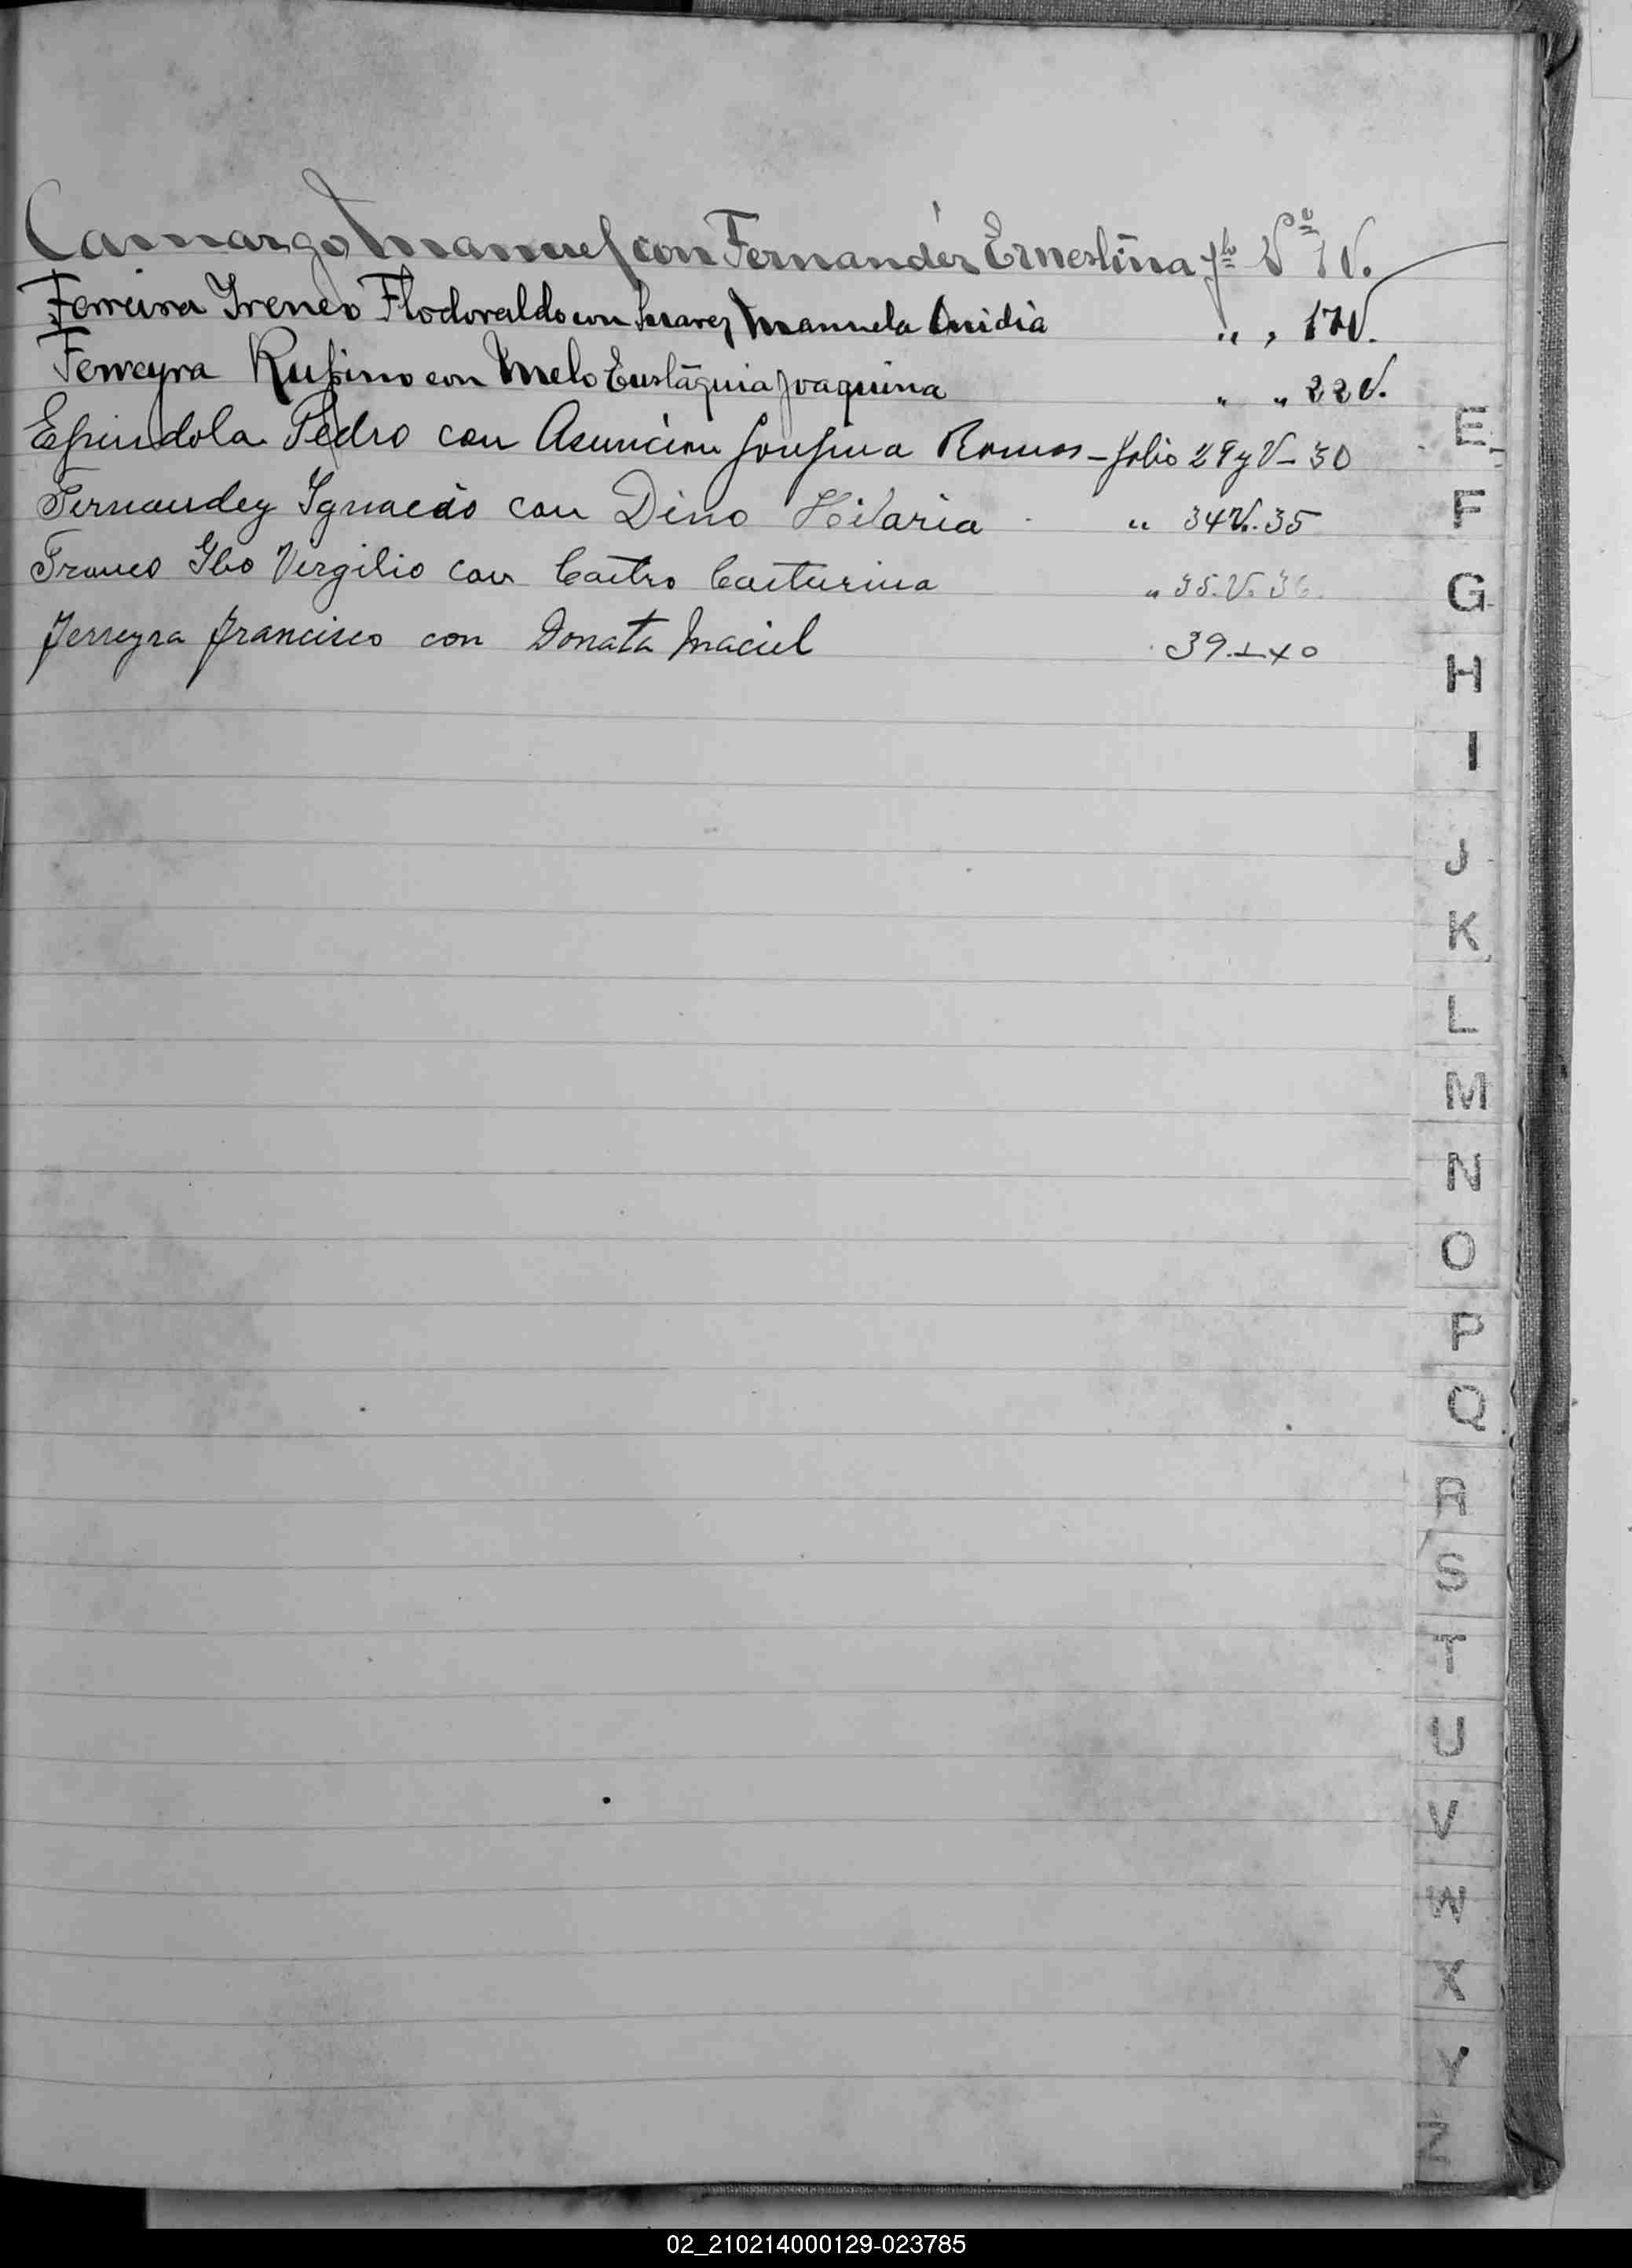 Camargo, Manuel con Fernandez Ernestina fº Vº 1V.
Ferreira Ireneo Flodovaldo con Suarez Manuela Onidia " , 17V.
Ferreyra Rufino con Melo Eustáquia Joaquina " " 22V.
Espindola Pedro con Asuncion Josefina Ramos - folio 29 y V - 30
Fernandez Ignacio con Dino Hilaria " 34V. 35
Franco Ibo Vergilio con Castro Casturina " 35.V. 36.
Ferreyra Francisco con Donata Maciel 39. 40
E
F
G
H
I
J
K
L
M
N
O
P
Q
R
S
T
U
V
W
X
Y
Z
02_210214000129-023785